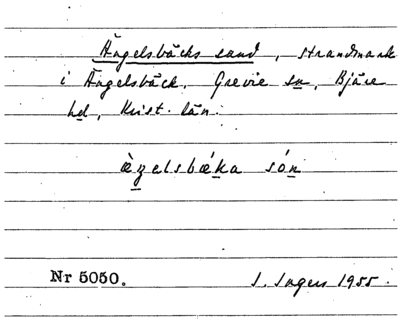 Ängelsbäcks sand, strandmark
i Ängelsbäck, Grevie sn, Bjäre
hd, Krist. län.
èzelsbáka són
Nr 5050.
S. Ingers 1955.